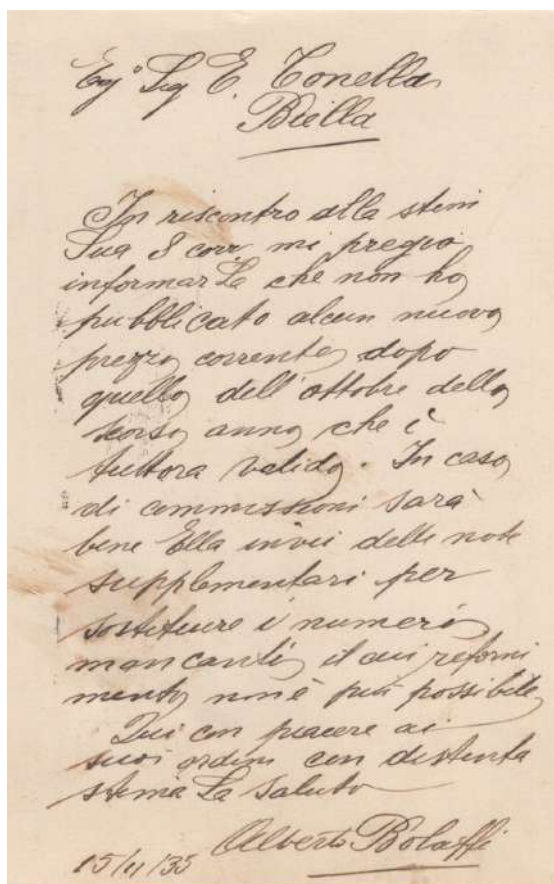 Egº Sig E. Tonella
Biella
In riscontro alla stim
Sua 8 corr. mi pregio
informarLa che non ho
pubblicato alcun nuovo
prezzo corrente dopo
quello dell'ottobre dello
scorso anno che è
tuttora valido. In caso
di commissioni sarà
bene Ella invii delle note
supplementari per
sostituire i numeri
mancanti il cui reforni
mento non è più possibile
con piacere ai
suoi ordini con distinta
stima La saluto
Alberto Bolaffi
15/11/35